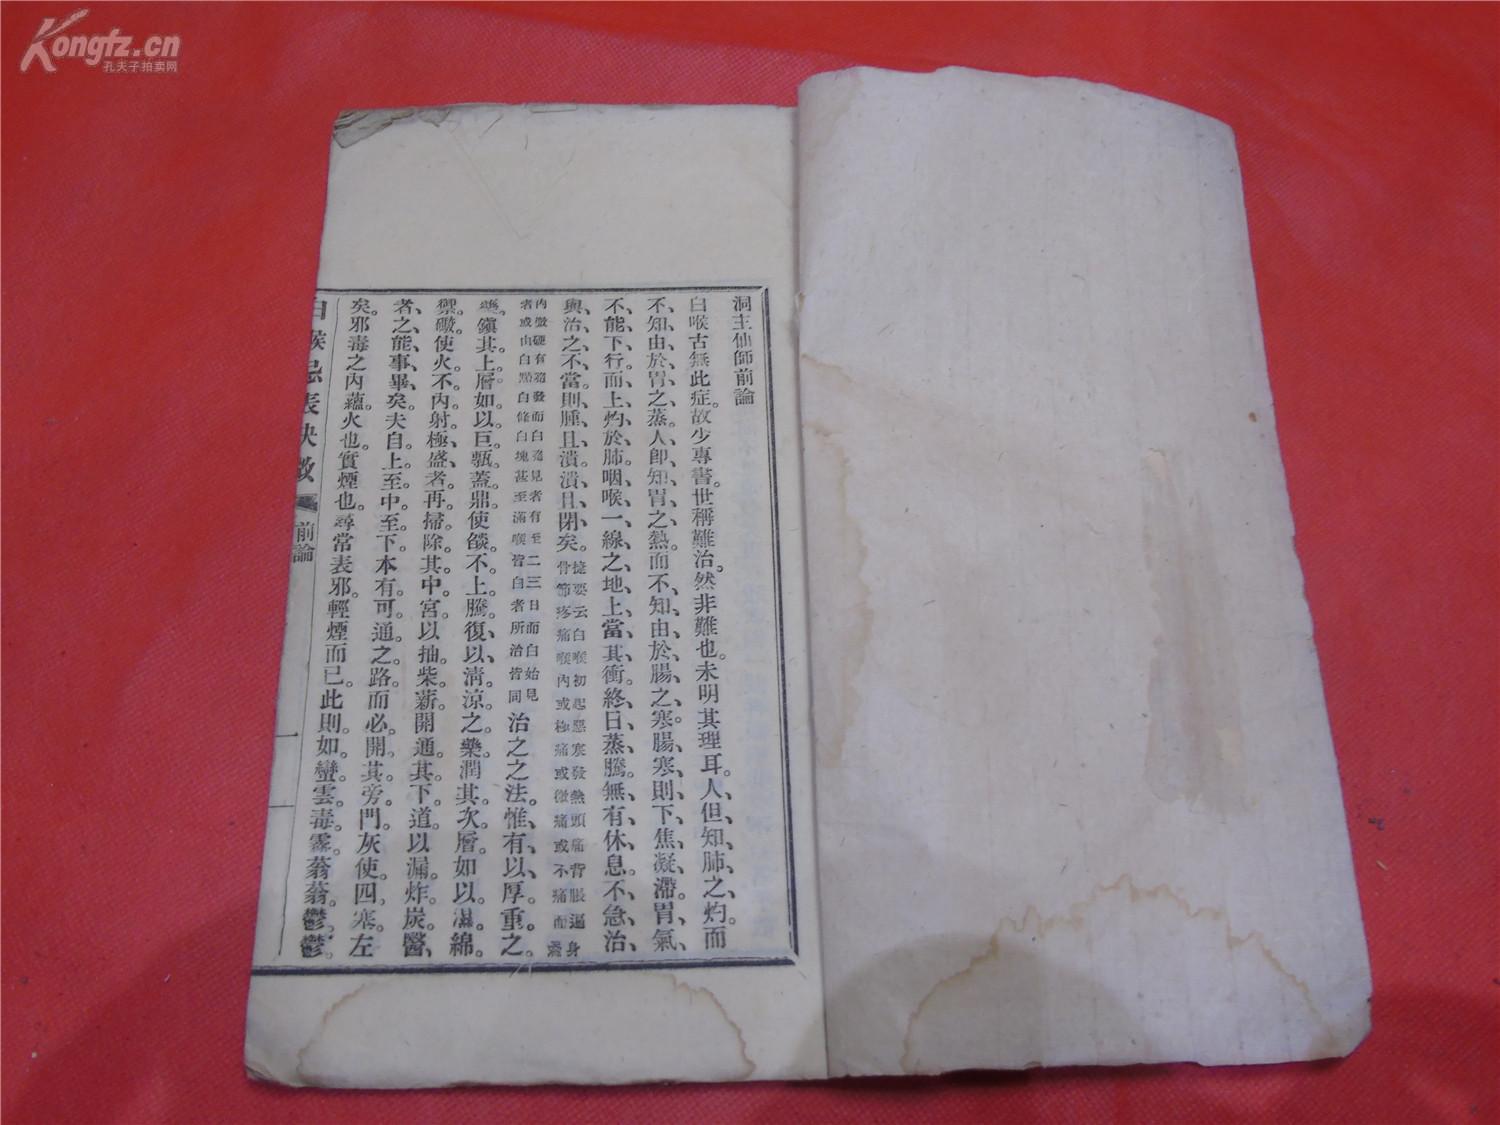 Kongfz.cn
孔夫子拍卖网
洞主仙師前論
白喉古無此症。故少專書。世稱難治。然非難也。未明其理耳。人但、知、肺、之、灼。而
不、知、由、於、胃、之、蒸。人、即、知、胃、之、熱。而、不、知、由、於、腸、之、寒。腸、寒、則、下、焦、凝、滯。胃、氣、
不、能、下、行。而、上、灼、於、肺。咽、喉、一、線、之、地。上、當、其、衝。終、日、蒸、騰。無、有、休、息。不、急、治、
與、治、之、不、當。則、腫、且、潰。潰、且、閉、矣。捷要云白喉初起惡寒發熱頭痛背脹遍身
骨節疼痛喉內或極痛或微痛或不痛而
內微硬有隨發而白隨見者有至二三日而白始見
者或由白點白條白塊甚至滿喉皆白者所治皆同治之之法。惟、有、以、厚。重。之。
藥。鎮。其。上。層。如。以。巨。甎。蓋。鼎。使。燄。不。上。騰。復、以、清。涼。之。藥。潤。其。次。層。如。以。濕。綿。
禦。礮。使。火。不。內。射。極、盛、者、再、掃。除。其。中。宮。以。抽。柴。薪。開。通。其。下。道。以。漏。炸。炭。醫、
者、之、能、事、畢、矣。夫。自。上。至。中。至。下。本。有。可。通。之。路。而。必。開。其。旁。門。灰。使。四。塞。左
矣。邪毒之內蘊。火也。實煙也。尋常表邪。輕煙而已。此則。如。蠻。雲。毒。霧。蓊。蓊。鬱。鬱。
白喉忌表抉微
前論
一